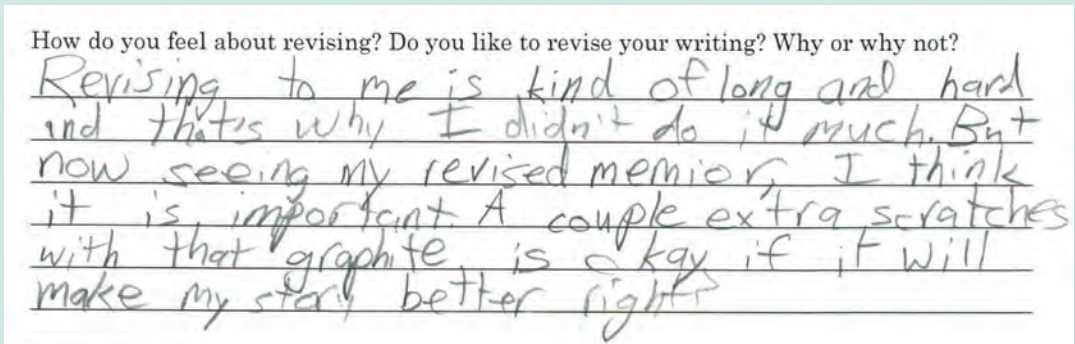 How do you feel about revising? Do you like to revise your writing? Why or why not?
Revising to me is kind of long and hard
and that's why I didn't do it much. But
now seeing my revised memior, I think
it is important. A couple extra scratches
with that graphite is okay if it will
make my story better right?